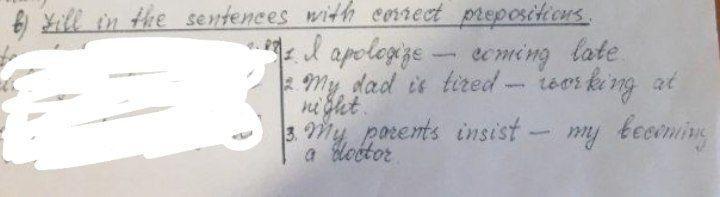 b) Fill in the sentences with correct prepositions.
1. I apologize — coming late
2. My dad is tired — working at
night.
3. My parents insist — my becoming
a doctor.